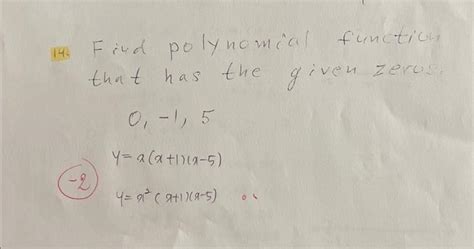 14. Find polynomial function
that has the given zeros.
0, -1, 5
y = x(x+1)(x-5)
-2
y = x² (x+1)(x-5)